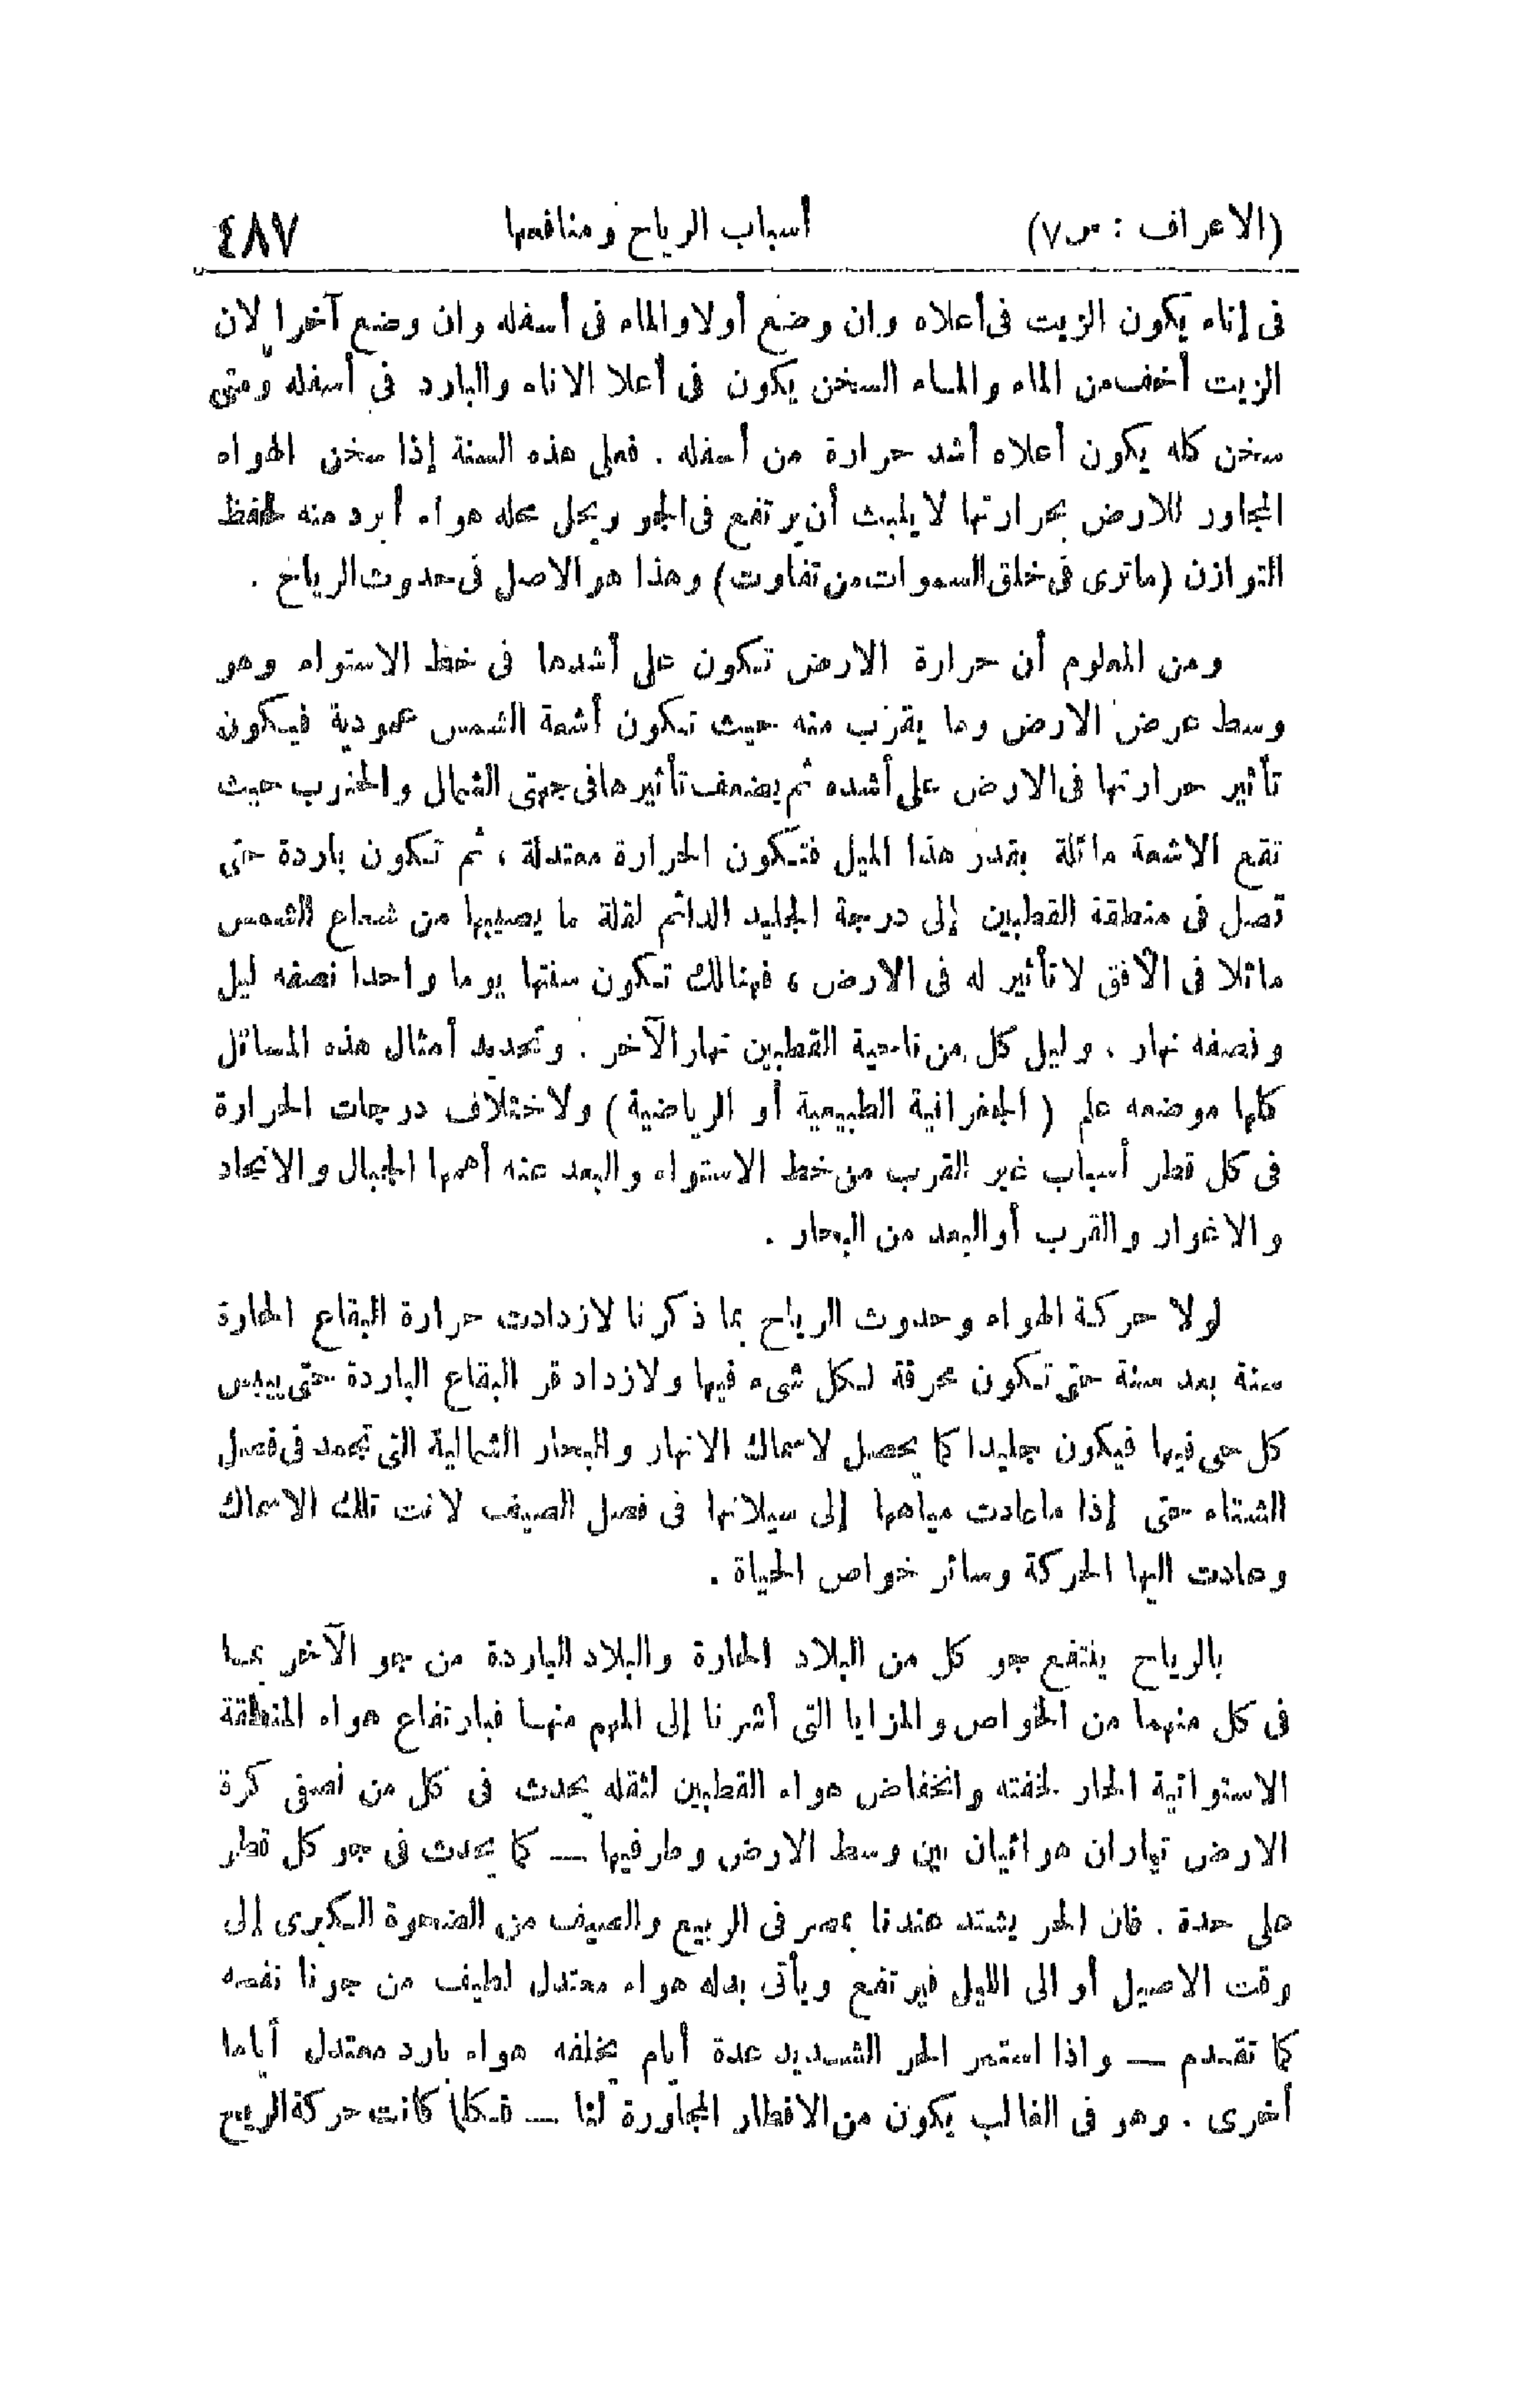 (الاعراف : س٧) أسباب الرياح ومنافعها ٤٨٧
فى إناء يكون الزيت فى أعلاه وان وضع أولا والماء فى أسفله وان وضع آخرا لان
الزيت أخف من الماء والماء السخن يكون فى أعلا الاناء والبارد فى أسفله ومتى
سخن كله يكون أعلاه أشد حرارة من أسفله . فعلى هذه السنة إذا سخن الهواء
المجاور للارض بحرارتها لا يلبث أن يرتفع فى الجو ويحل محله هواء أبرد منه لحفظ
التوازن (ماترى فى خلق السموات من تفاوت) وهذا هو الاصل فى حدوث الرياح .
ومن المعلوم أن حرارة الارض تكون على أشدها فى خط الاستواء وهو
وسط عرض الارض وما يقرب منه حيث تكون أشعة الشمس عمودية فيكون
تأثير حرارتها فى الارض على أشده ثم يضعف تأثيرها فى جهتى الشمال والجنوب حيث
تقع الاشعة مائلة بقدر هذا الميل فتكون الحرارة معتدلة ، ثم تكون باردة حتى
تصل فى منطقة القطبين إلى درجة الجليد الدائم لقلة ما يصيبها من شعاع الشمس
مائلا فى الأفق لا تأثير له فى الارض ، فهنالك تكون سنتها يوما واحدا نصفه ليل
ونصفه نهار ، وليل كل من ناحية القطبين نهار الآخر . وتحديد أمثال هذه المسائل
كلها موضعه علم ( الجغرافية الطبيعية أو الرياضية ) ولاختلاف درجات الحرارة
فى كل قطر أسباب غير القرب من خط الاستواء والبعد عنه أهمها الجبال والانجاد
والاغوار والقرب أو البعد من البحار .
لولا حركة الهواء وحدوث الرياح بما ذكرنا لازدادت حرارة البقاع الحارة
سنة بعد سنة حتى تكون محرقة لكل شىء فيها ولازداد قر البقاع الباردة حتى ييبس
كل حى فيها فيكون جليدا كما يحصل لاسماك الانهار والبحار الشمالية التى تجمد فى فصل
الشتاء حتى إذا ماعادت مياهها إلى سيلانها فى فصل الصيف لانت تلك الاسماك
وعادت اليها الحركة وسائر خواص الحياة .
بالرياح ينتفع جو كل من البلاد الحارة والبلاد الباردة من جو الآخر بما
فى كل منهما من الخواص والمزايا التى أشرنا إلى المهم منها فبارتفاع هواء المنطقة
الاستوائية الحار لخفته وانخفاض هواء القطبين لثقله يحدث فى كل من نصفى كرة
الارض تياران هوائيان بين وسط الارض وطرفيها — كما يحدث فى جو كل قطر
على حدة . فان الحر يشتد عندنا بمصر فى الربيع والصيف من الضحوة الكبرى إلى
وقت الاصيل أو الى الليل فيرتفع ويأتى بدله هواء معتدل لطيف من جونا نفسه
كما تقدم — واذا استمر الحر الشديد عدة أيام يخلفه هواء بارد معتدل أياما
أخرى . وهو فى الغالب يكون من الاقطار المجاورة لنا — فكلما كانت حركة الريح